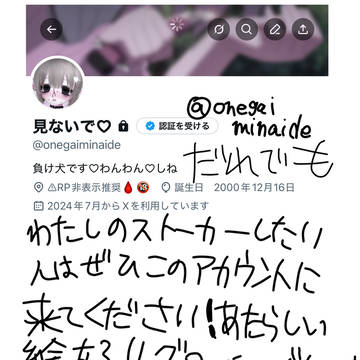 @onegai
minaide
見ないで♡🔒 認証を受ける
@onegaiminaide
だれでも
負け犬です♡わんわん♡しね
⚠RP非表示推奨🩸🔞 誕生日 2000年12月16日
2024年7月からXを利用しています
わたしのストーカーしたい
人はぜひこのアカウントに
来てください!あたらしい